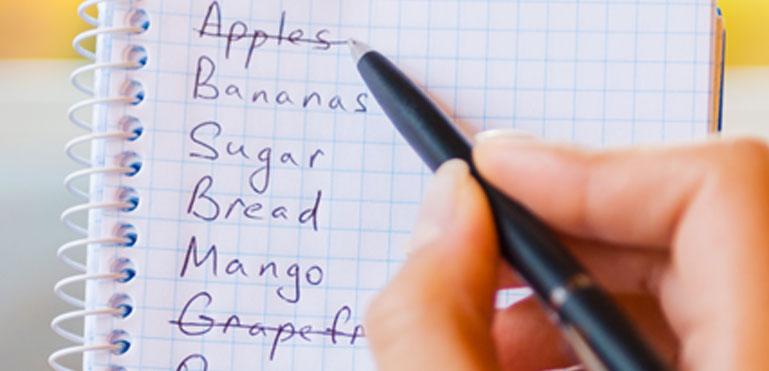 Apples
Bananas
Sugar
Bread
Mango
Grapefr